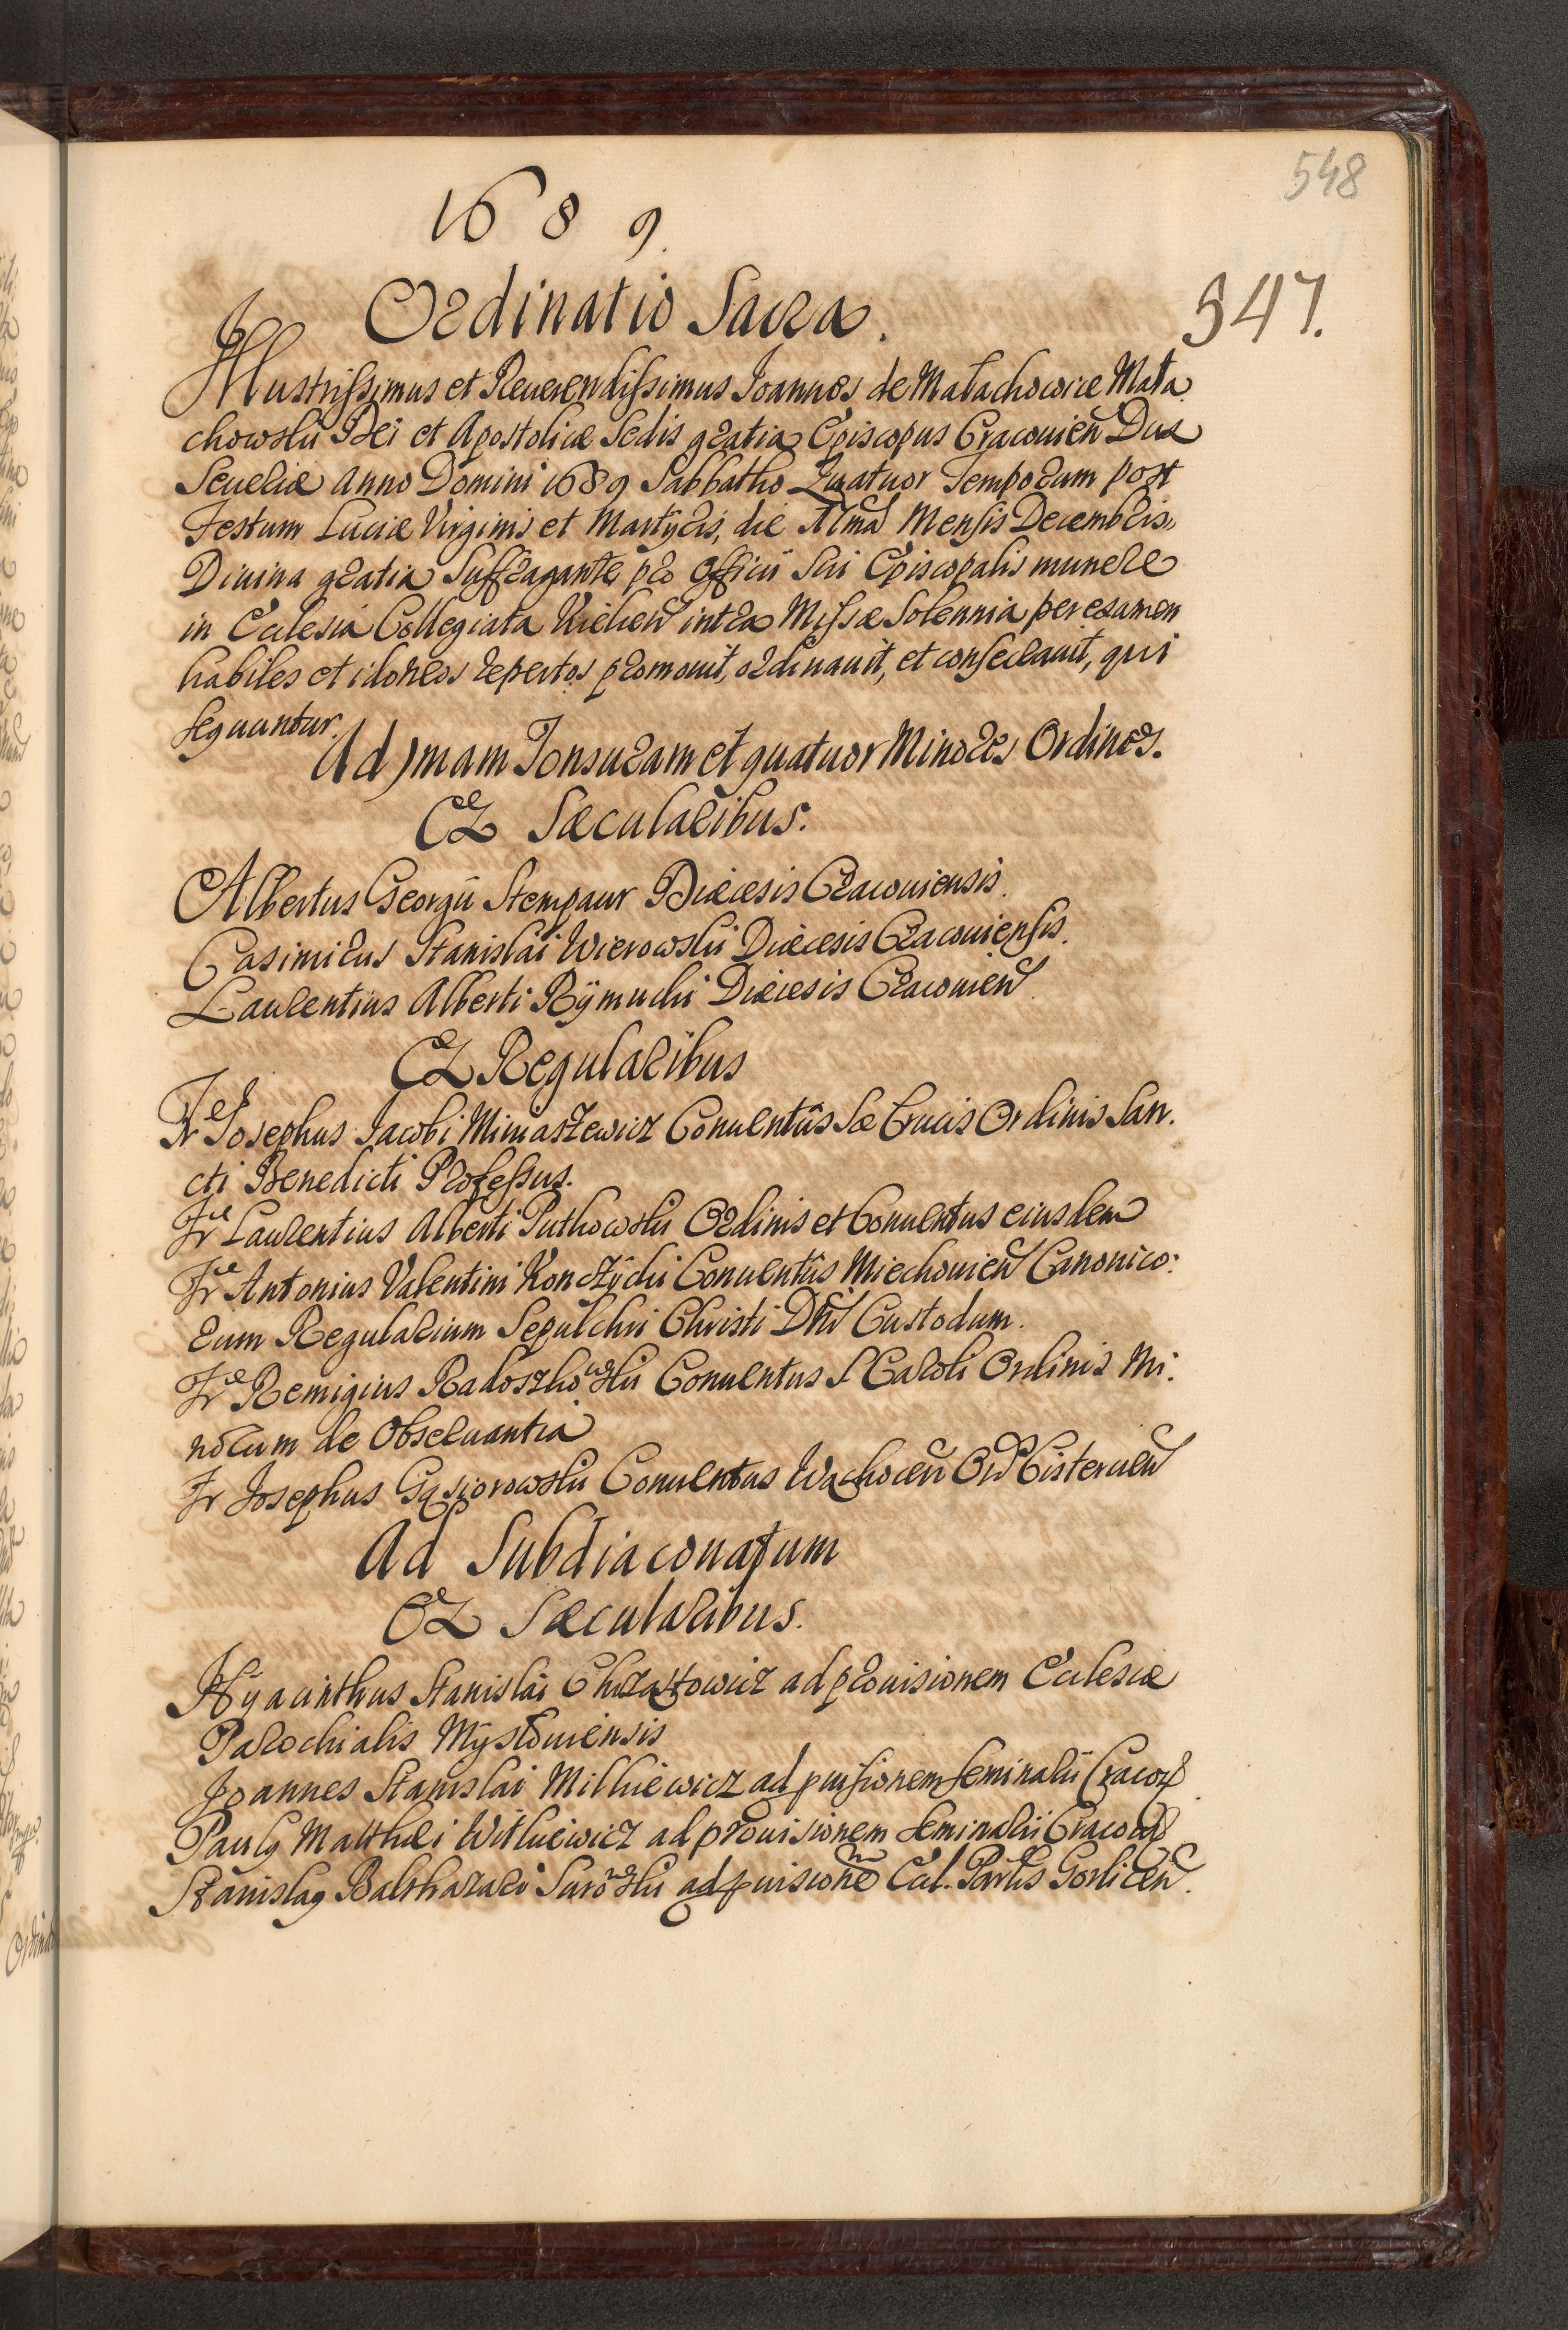 548
1689.
Ordinatio Sacra.
547.
Illustrissimus et Reuerendissimus Joannes de Małachowice Mała
chowski Dei et Apostolicæ Sedis gratia Episcopus Cracouien Dux
Seueriæ Anno Domini 1689 Sabbatho Quatuor Temporum post
Festum Luciæ Virginis et Martÿris, die Mensis Decembris,
Diuina gratia Suffragante pro Officii Sui Episcopalis munere
in Ecclesia Collegiata Kielcen intra Missæ Solennia per examen
habiles et idoneos repertos promouit, ordinauit, et consecrauit, qui
sequuntur.
Ad 1mam Tonsuram et quatuor Minores Ordines.
Ex Sæcularibus.
Albertus Georgii Stempaur Diæcesis Cracouiensis.
Casimirus Stanislai Wierowski Diæcesis Cracouiensis.
Laurentius Alberti Rÿmucki Diæcesis Cracouien.
Ex Regularibus
Fr Josephus Jacobi Conuentûs Sæ Crucis Ordinis San.
cti Benedicti Professus.
Fr Laurentius Alberti Putkowski Ordinis et Conuentus eiusdem
Fr Antonius Valentini Konczÿcki Conuentûs Miechouien Canonico:
rum Regularium Sepulchri Christi Dni Custodum.
Fr Remigius Radoszkowski Conuentus S Caroli Ordinis Mi:
norum de Obseruantia
Fr Josephus Gąsiorowski Conuentus Wąchocen Ord Cistercien
Ad Subdiaconatum
Ex Sæcularibus.
Hyacinthus Stanislai Chrząstowicz ad prouisionem Ecclesiæ
Parochialis Mÿsłouiensis
Joannes Stanislai Milkiewicz ad puisionem Seminarii Cracov
Paulq Matthæi Witkiewicz ad prouisionem Seminarii Cracov
Stanislaq Balthazari Surowski ad puisionem Eccl. Parlis Gorlicen.